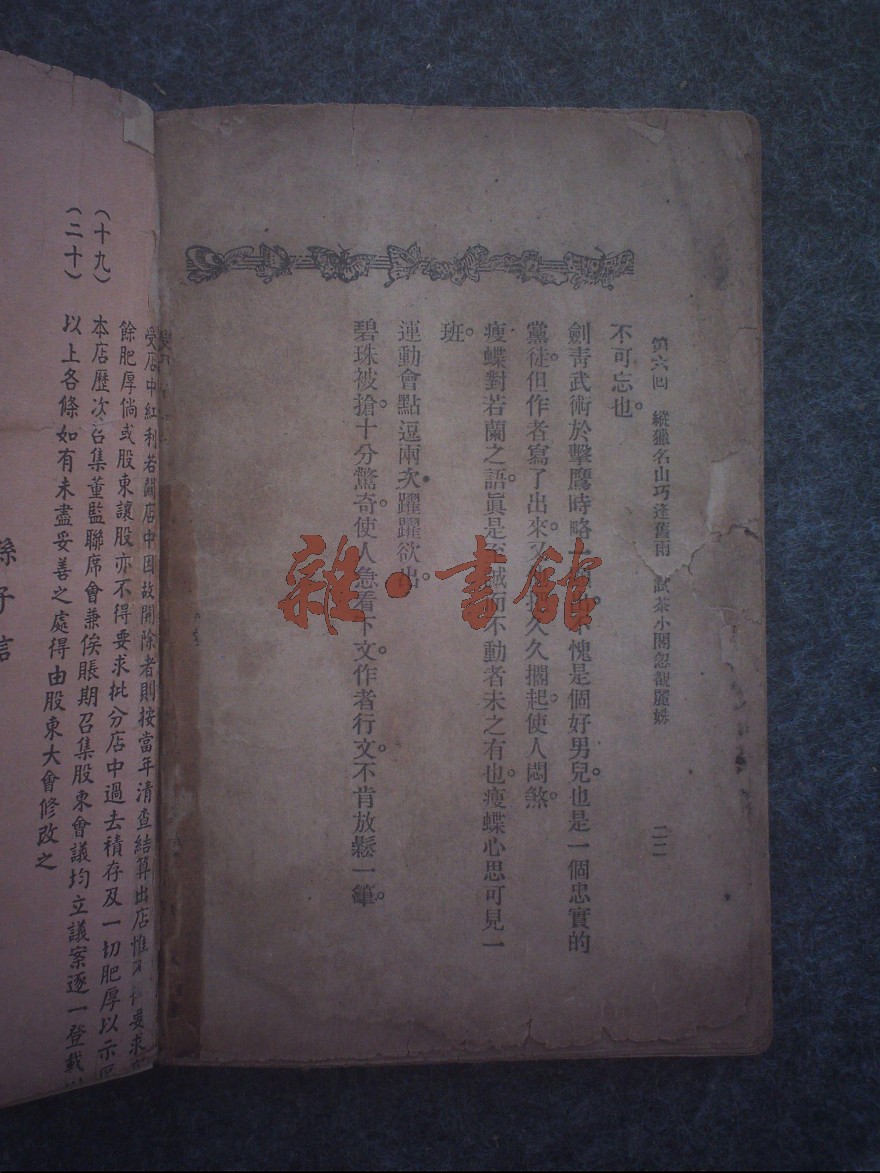 第六回 縱獵名山巧逢舊雨 試茶小閣忽覩麗姝 二二
不可忘也。
劍青武術於擊鷹時略一 不愧是個好男兒也是一個忠實的
黨徒但作者寫了出來又 久久擱起使人悶煞。
瘦蝶對若蘭之語眞是至誠而不動者未之有也瘦蝶心思可見一
班。
運動會點逗兩次躍躍欲出。
碧珠被搶十分驚奇使人急看下文作者行文不肯放鬆一筆。
雜·書館
受店中紅利若關店中因故開除者則按當年清查結算出店惟 要求
餘肥厚倘或股東讓股亦不得要求批分店中過去積存及一切肥厚以示
(十九) 本店歷次召集董監聯席會兼俟賬期召集股東會議均立議案逐一登載
(二十) 以上各條如有未盡妥善之處得由股東大會修改之
孫子言